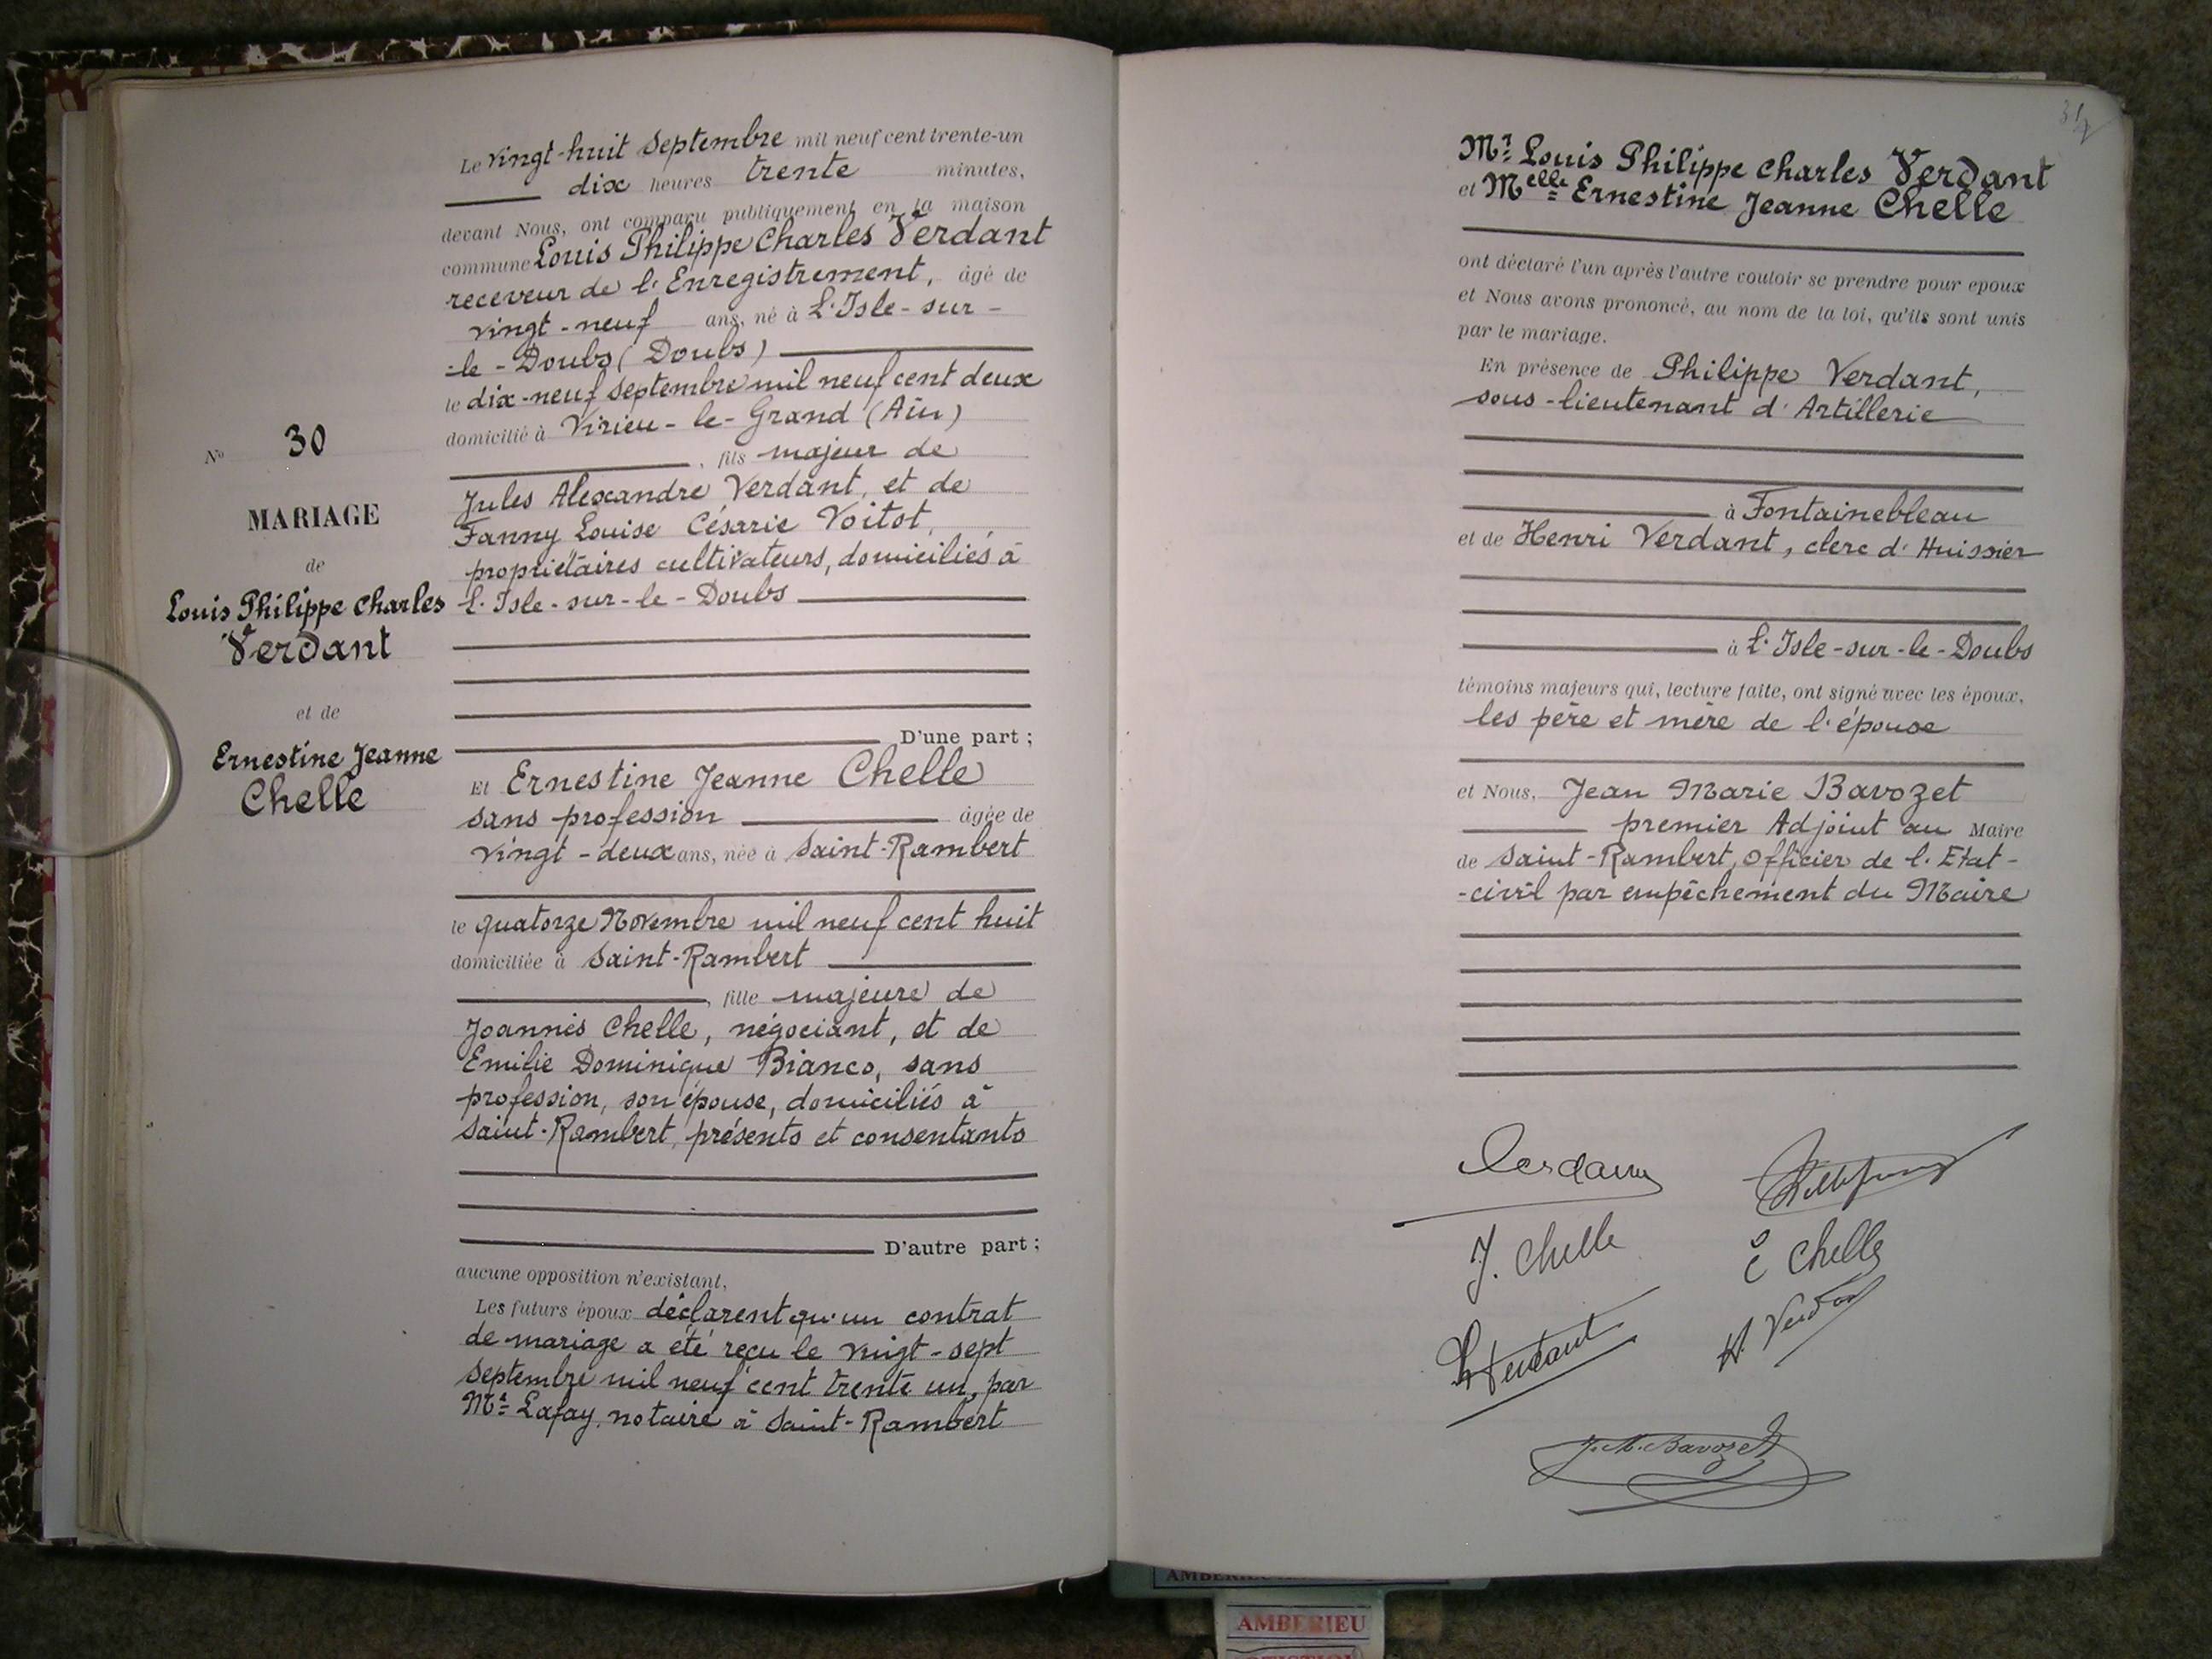 Le vingt-huit Septembre mil neuf cent trente-un
dix heures trente minutes,
devant Nous, ont comparu publiquement en la maison
commune Louis Philippe Charles Verdant
receveur de l'Enregistrement, âgé de
vingt-neuf ans, né à L'Isle-sur-
-le-Doubs (Doubs)
le dix-neuf septembre mil neuf cent deux
domicilié à Virieu-le-Grand (Ain)
, fils majeur de
Jules Alexandre Verdant, et de
Fanny Louise Césarie Voitot,
propriétaires cultivateurs, domiciliés à
L'Isle-sur-le-Doubs
D'une part ;
Et Ernestine Jeanne Chelle
sans profession âgée de
vingt-deux ans, née à Saint-Rambert
le quatorze Novembre mil neuf cent huit
domiciliée à Saint-Rambert
, fille majeure de
Joannès Chelle, négociant, et de
Emilie Dominique Bianco, sans
profession, son épouse, domiciliés à
Saint-Rambert, présents et consentants
D'autre part ;
aucune opposition n'existant,
Les futurs époux déclarent qu'un contrat
de mariage a été reçu le vingt-sept
septembre mil neuf cent trente un, par
Me Lafay, notaire à Saint-Rambert
No 30
MARIAGE
de
Louis Philippe Charles
Verdant
et de
Ernestine Jeanne
Chelle
Mr Louis Philippe Charles Verdant
et Melle Ernestine Jeanne Chelle
ont déclaré l'un après l'autre vouloir se prendre pour époux
et Nous avons prononcé, au nom de la loi, qu'ils sont unis
par le mariage.
En présence de Philippe Verdant,
sous-lieutenant d'Artillerie
à Fontainebleau
et de Henri Verdant, clerc d'Huissier
à L'Isle-sur-le-Doubs
témoins majeurs qui, lecture faite, ont signé avec les époux,
les père et mère de l'épouse
et Nous, Jean Marie Bavozet
premier Adjoint au Maire
de Saint-Rambert, Officier de l'Etat-
-civil par empêchement du Maire
Verdant
J. Chelle
E Chelle
Verdant
H. Verdant
J.M. Bavozet
AMBERIEU